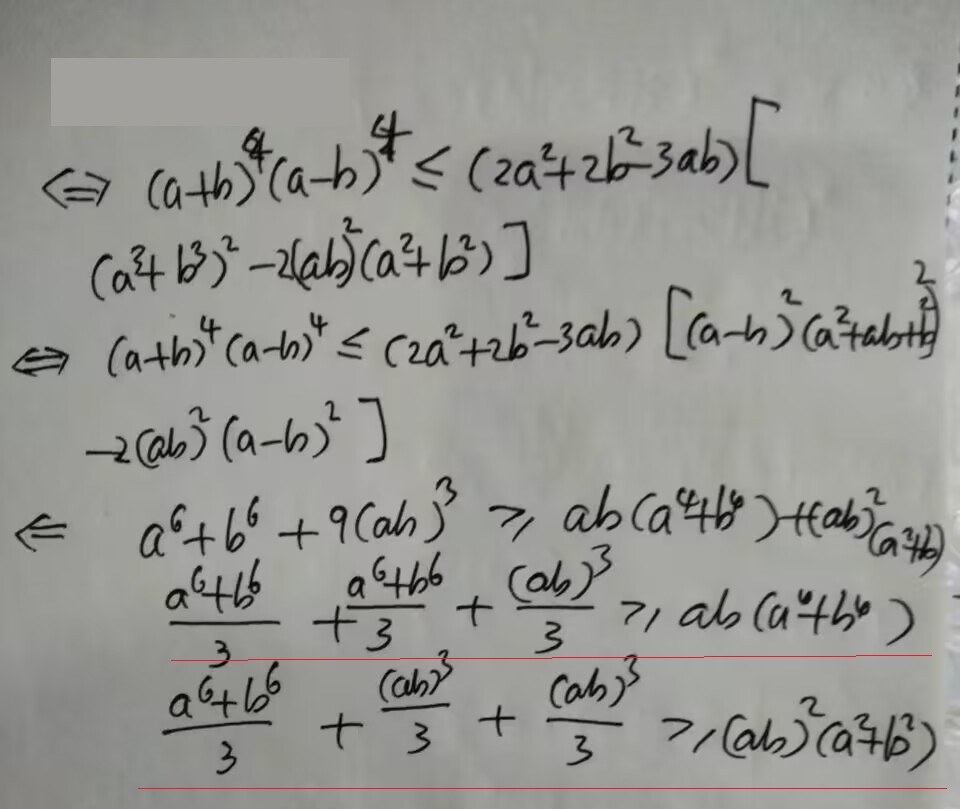 ⇔ (a+b)⁴(a-b)⁴ ≤ (2a²+2b²-3ab)[
(a³+b³)²-2(ab)²(a²+b²)]
⇔ (a+b)⁴(a-b)⁴ ≤ (2a²+2b²-3ab)[(a-b)²(a²+ab+b²)²
-2(ab)²(a-b)²]
⇐ a⁶+b⁶+9(ab)³ ≥ ab(a⁴+b⁴)+(ab)²(a²+b)
(a⁶+b⁶)/3 + (a⁶+b⁶)/3 + (ab)³/3 ≥ ab(a⁴+b⁴)
(a⁶+b⁶)/3 + (ab)³/3 + (ab)³/3 ≥ (ab)²(a²+b²)